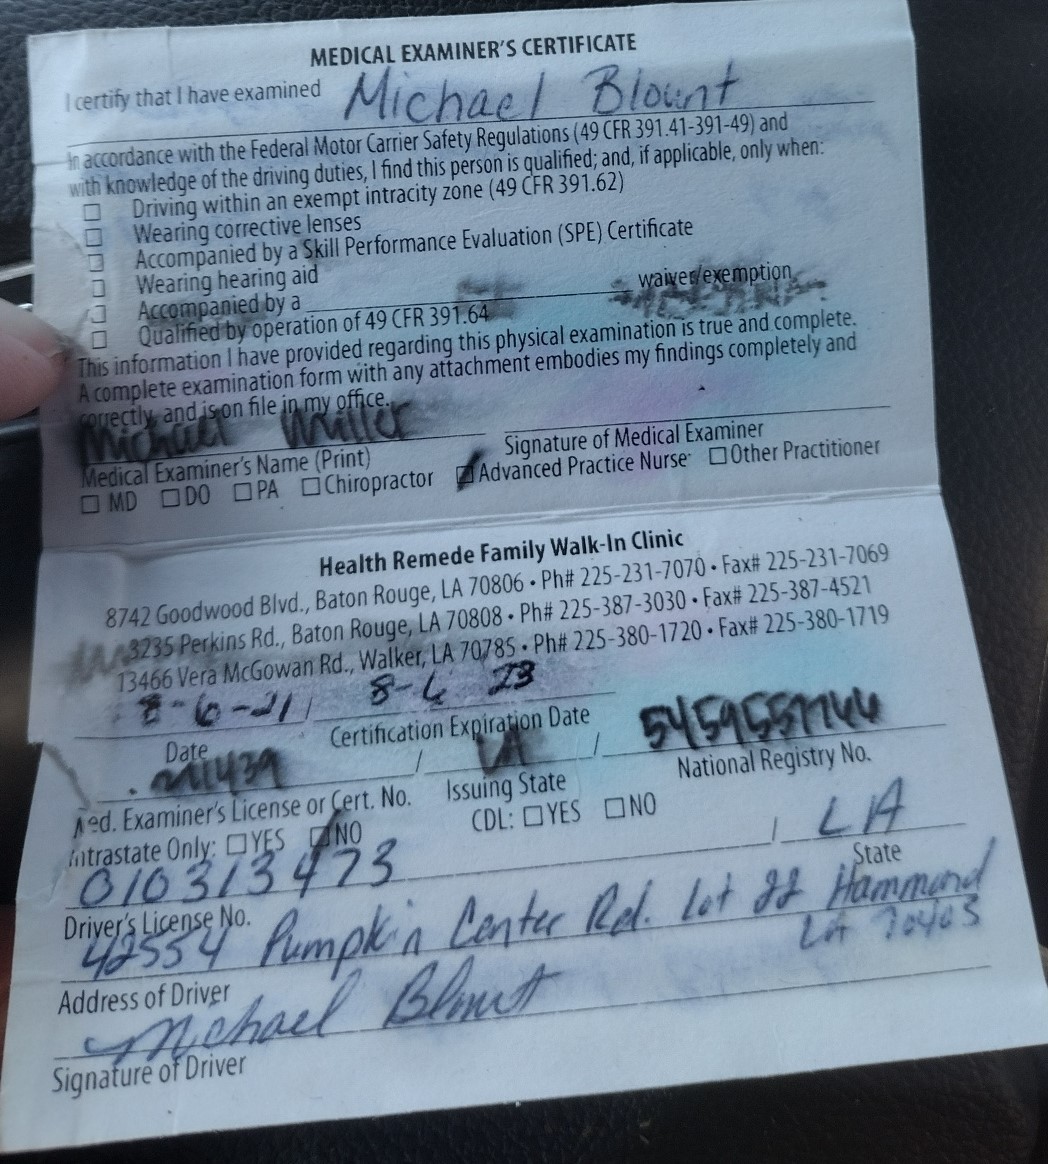 MEDICAL EXAMINER'S CERTIFICATE
I certify that I have examined Michael Blount
In accordance with the Federal Motor Carrier Safety Regulations (49 CFR 391.41-391-49) and
with knowledge of the driving duties, I find this person is qualified; and, if applicable, only when:
☐ Driving within an exempt intracity zone (49 CFR 391.62)
☐ Wearing corrective lenses
☐ Accompanied by a Skill Performance Evaluation (SPE) Certificate
☐ Wearing hearing aid
☐ Accompanied by a waiver/exemption
☐ Qualified by operation of 49 CFR 391.64
This information I have provided regarding this physical examination is true and complete.
A complete examination form with any attachment embodies my findings completely and
correctly, and is on file in my office.
Michael Miller
Medical Examiner's Name (Print) Signature of Medical Examiner
☐ MD ☐ DO ☐ PA ☐ Chiropractor ☑ Advanced Practice Nurse ☐ Other Practitioner
Health Remede Family Walk-In Clinic
8742 Goodwood Blvd., Baton Rouge, LA 70806 • Ph# 225-231-7070 • Fax# 225-231-7069
3235 Perkins Rd., Baton Rouge, LA 70808 • Ph# 225-387-3030 • Fax# 225-387-4521
13466 Vera McGowan Rd., Walker, LA 70785 • Ph# 225-380-1720 • Fax# 225-380-1719
8-6-21 / 8-6 23
Date Certification Expiration Date National Registry No.
/ LA /
Med. Examiner's License or Cert. No. Issuing State
Intrastate Only: ☐ YES ☑ NO CDL: ☐ YES ☐ NO
010313473 / LA
Driver's License No. State
42554 Pumpkin Center Rd. Lot 22 Hammond
LA 70403
Address of Driver
Michael Blount
Signature of Driver